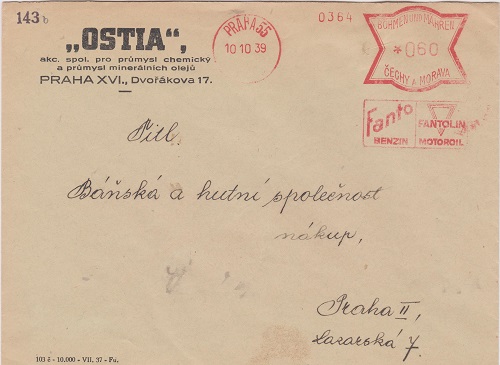 143b
„OSTIA“,
akc. spol. pro průmysl chemický
a průmysl minerálních olejů
PRAHA XVI., Dvořákova 17.
PRAHA 55
10 10 39
0364
BÖHMEN UND MÄHREN
*060
ČECHY A MORAVA
Fanto
BENZIN
FANTOLIN
MOTOROIL
Titl.
Báňská a hutní společnost
nákup,
Praha II,
Lazarská 7.
103 č - 10.000 - VII. 37 - Fu.